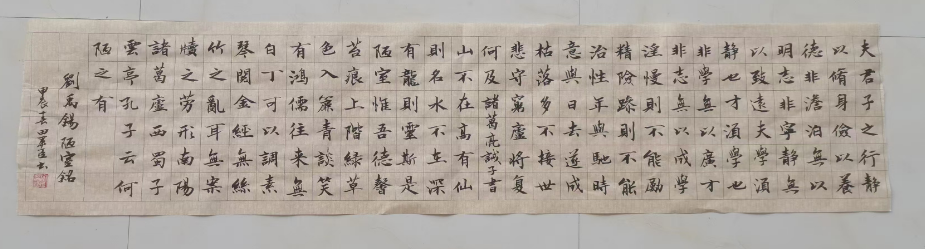 夫君子之行静
以脩身儉以養
德非澹泊無以
明志非寧静無
以致遠夫學湏
静也才湏學也
非學無以廣才
非志無以成學
淫慢則不能勵
精險躁則不能
治性年與馳時
意與日去遂成
枯落多不接世
悲守窮廬將復
何及 諸葛亮誡子書
山不在高有仙
則名水不在深
有龍則靈斯是
陋室惟吾德馨
苔痕上階緑草
色入簾青談笑
有鴻儒往來無
白丁可以調素
琴閲金經無絲
竹之亂耳無案
牘之勞形南陽
諸葛廬西蜀子
雲亭孔子云何
陋之有
劉禹錫陋室銘
甲辰春